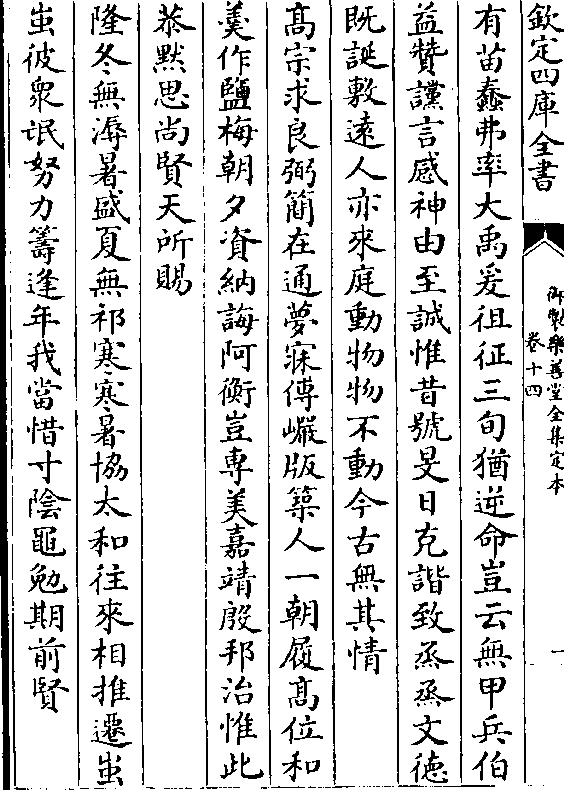 欽定四庫全書
御製樂善堂全集定本
卷十四
一
有苗蠢弗率大禹爰徂征三旬猶逆命豈云無甲兵伯
益贊讜言感神由至誠惟昔號旻日克諧致烝烝文德
既誕敷遠人亦來庭動物物不動今古無其情
髙宗求良弼簡在通夢寐傅巗版築人一朝履髙位和
羮作鹽梅朝夕資納誨阿衡豈專美嘉靖殷邦治惟此
恭黙思尚賢天所賜
隆冬無溽暑盛夏無祁寒寒暑協太和往來相推遷蚩
蚩彼衆氓努力籌逢年我當惜寸陰黽勉期前賢